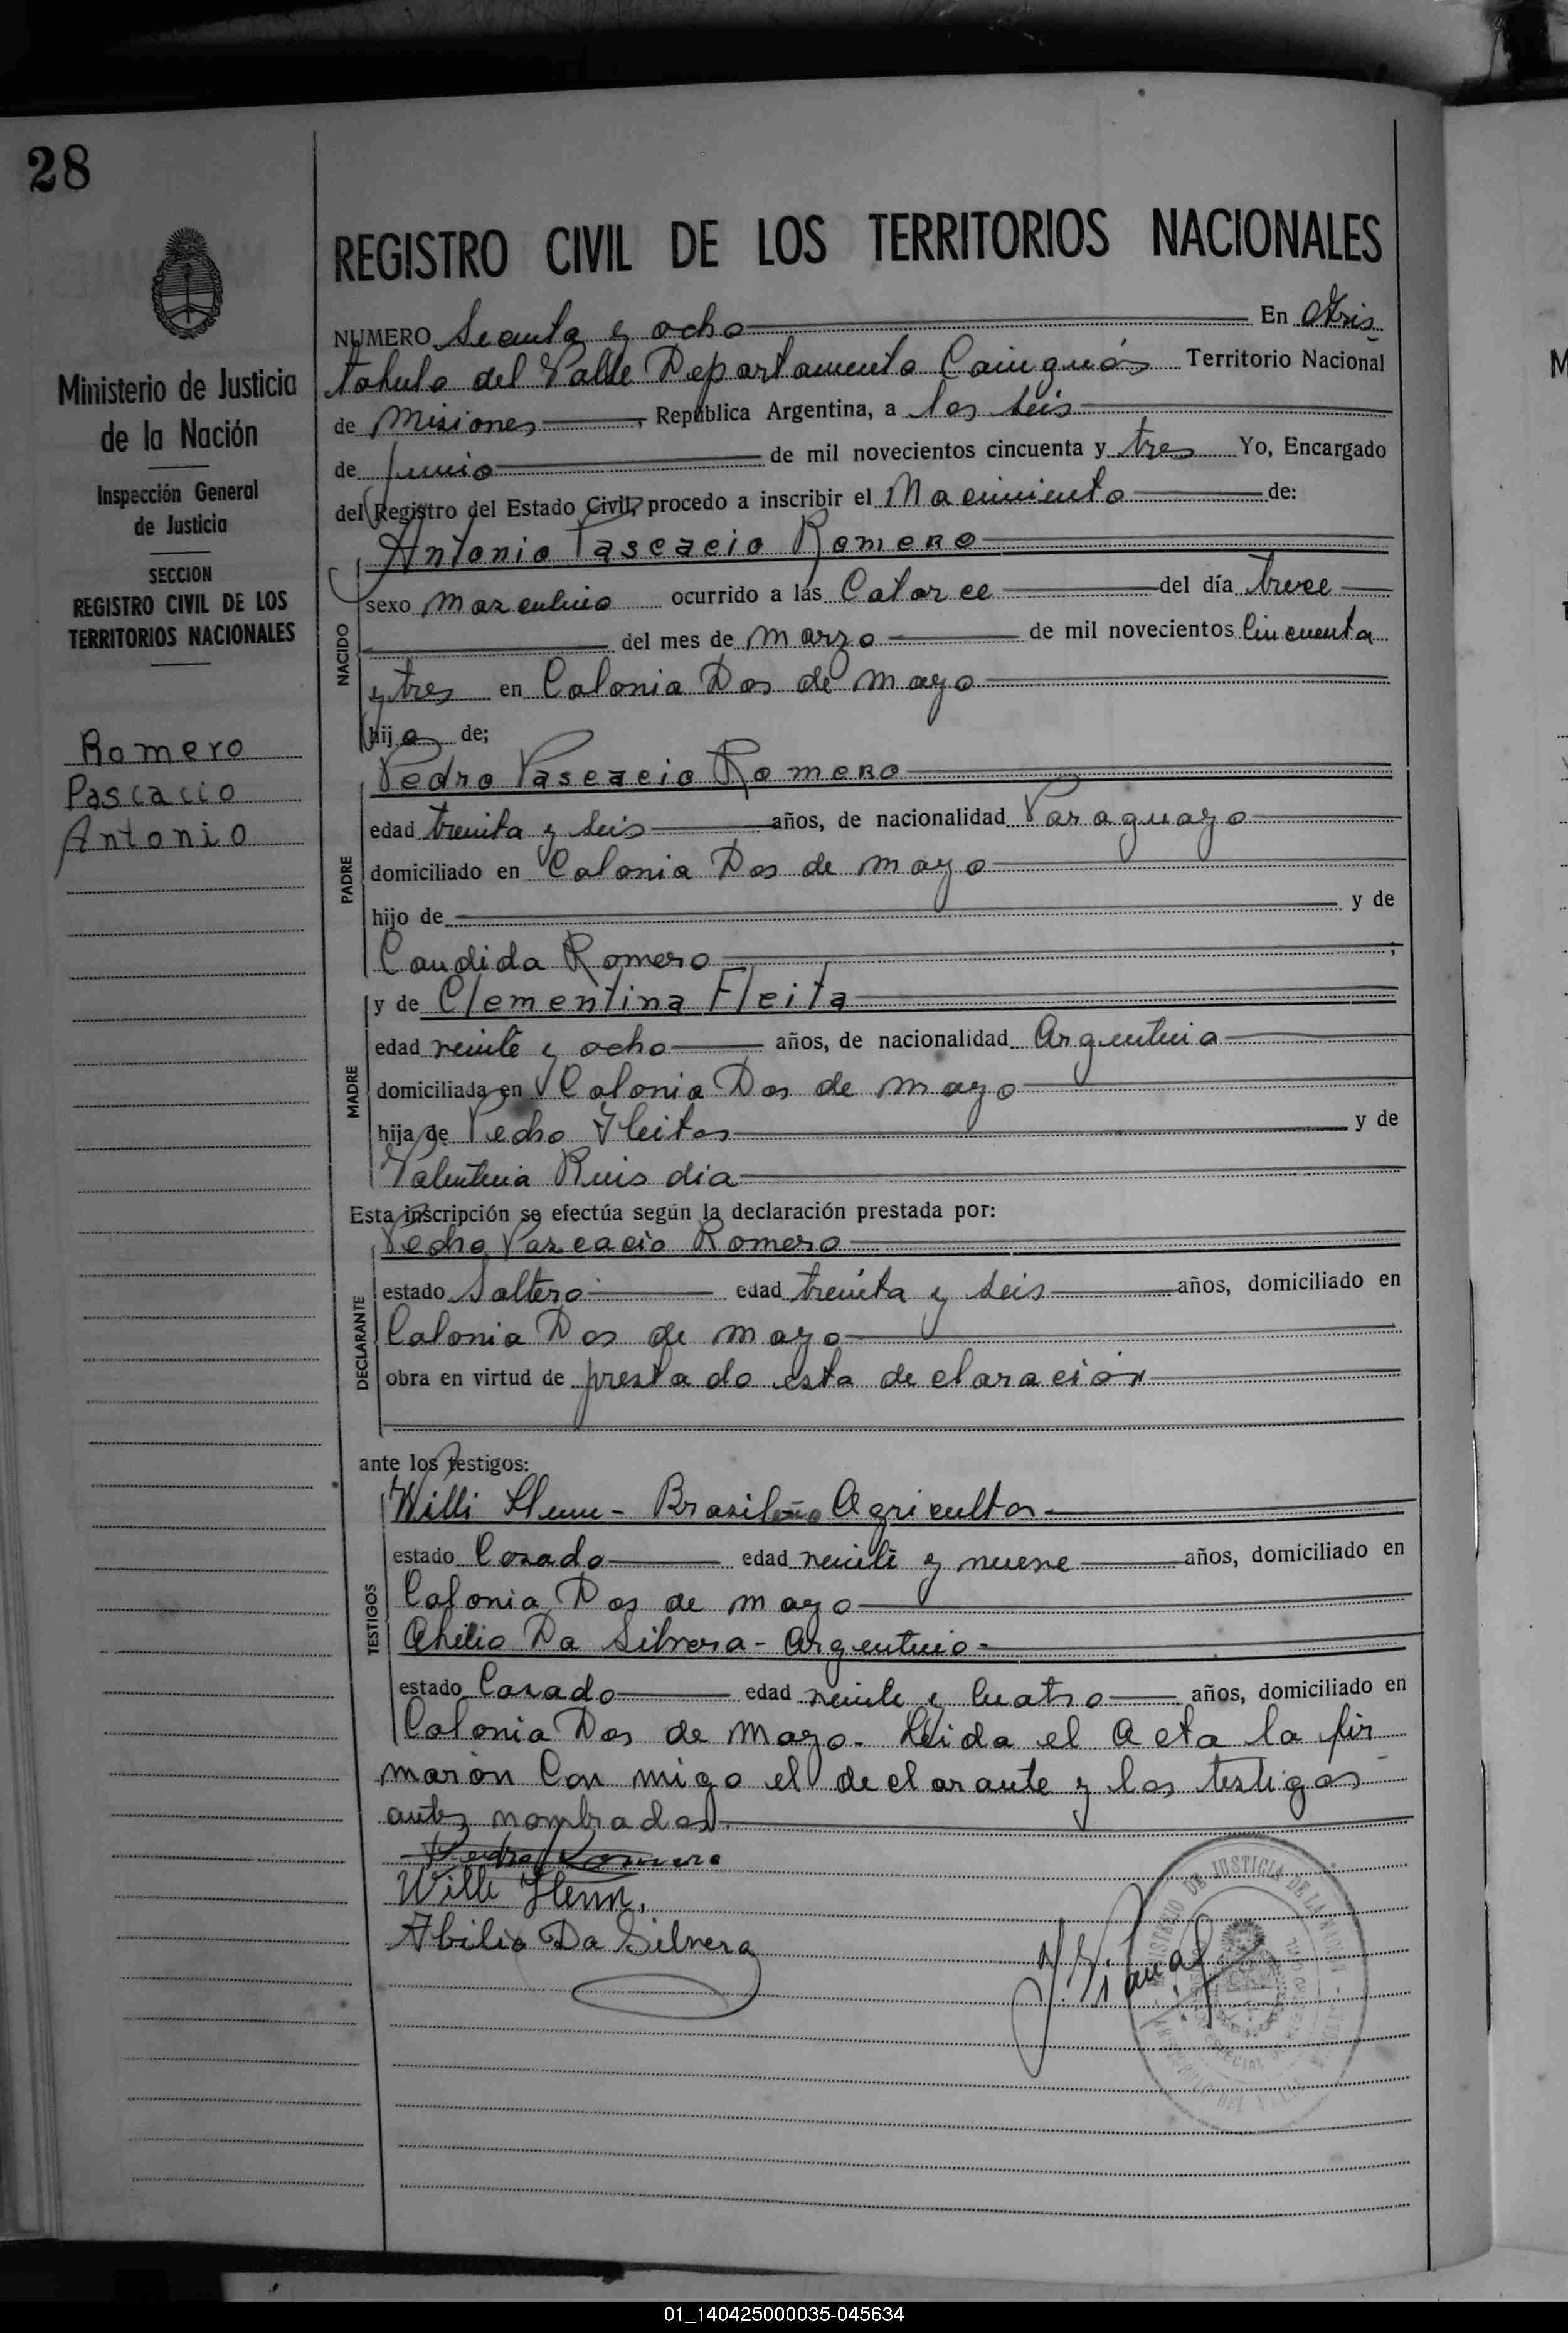 28
Ministerio de Justicia
de la Nación
Inspección General
de Justicia
SECCION
REGISTRO CIVIL DE LOS
TERRITORIOS NACIONALES
Romero
Pascacio
Antonio
REGISTRO CIVIL DE LOS TERRITORIOS NACIONALES
NUMERO y ocho En Aris
tobulo del Valle Departamento Cainguás Territorio Nacional
de Misiones, República Argentina, a los seis
de Junio de mil novecientos cincuenta y tres Yo, Encargado
del Registro del Estado Civil, procedo a inscribir el Nacimiento de:
Antonio Pascacio Romero
NACIDO
sexo Mazculino ocurrido a las Catorce del día trece
del mes de Marzo de mil novecientos Cincuenta
y tres en Colonia Dos de Mayo
hijo de;
PADRE
Pedro Pascacio Romero
edad treinta y seis años, de nacionalidad Paraguayo
domiciliado en Colonia Dos de Mayo
hijo de y de
Candida Romero;
MADRE
y de Clementina Fleita
edad veinte y ocho años, de nacionalidad Argentina
domiciliada en Colonia Dos de Mayo
hija de Pedro Fleitas y de
Valentina Ruis dia
Esta inscripción se efectúa según la declaración prestada por:
DECLARANTE
Pedro Pazcacio Romero
estado Soltero edad treinta y seis años, domiciliado en
Colonia Dos de Mayo
obra en virtud de prestado esta declaración
ante los testigos:
TESTIGOS
Willi Henn - Brasileño Agricultor
estado Cazado edad veinte y nueve años, domiciliado en
Colonia Dos de Mayo
Abilio Da Silvera - Argentino -
estado Cazado edad veinte y Cuatro años, domiciliado en
Colonia Dos de Mayo. Leida el Acta la fir
maron Con migo el declarante y los testigos
antes nombrados.
Pedro Romero
Willi Henn.
Abilio Da Silvera
MINISTERIO DE JUSTICIA DE LA NACION
01_140425000035-045634